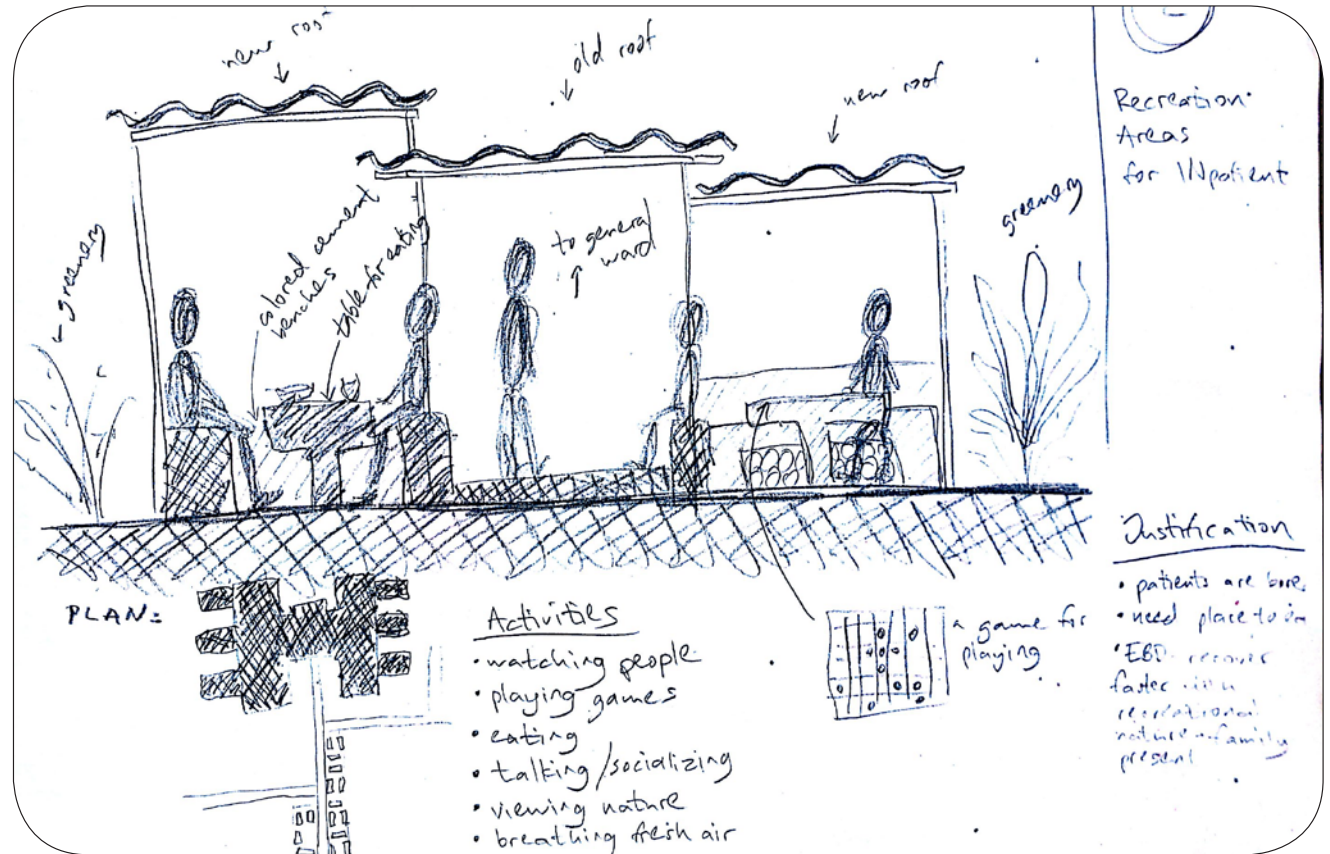 new roof
old roof
new roof
Recreation
Areas
for INpatient
greenery
colored cement
benches
table for eating
to general
ward
greenery
PLAN:
Activities
• watching people
• playing games
• eating
• talking/socializing
• viewing nature
• breathing fresh air
a game for
playing
Justification
• patients are bore
• need place to
• EBD recover
faster
recreational
nature + family
present